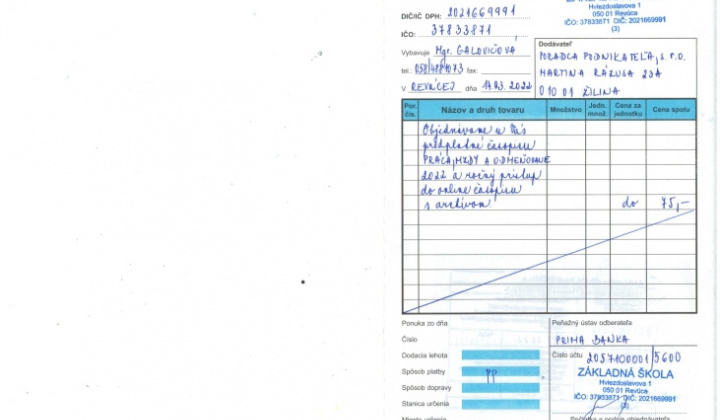 Hviezdoslavova 1
050 01 Revúca
IČO: 37833871 DIČ: 2021669991
(3)
DIČ/IČ DPH: 2021669991
IČO: 37833871
Vybavuje Mgr. GALOVIČOVÁ
tel.: fax:
V REVÚCEJ dňa 14.03.2022
Dodávateľ
PORADCA PODNIKATEĽA, s.r.o.
MARTINA RÁZUSA 23A
010 01 ŽILINA
Por. čís. Názov a druh tovaru Množstvo Jedn. množ. Cena za jednotku Cena spolu
Objednávame u Vás
predplatné časopisu
PRÁCA, MZDY A ODMEŇOVANIE
2022 a ročný prístup
do online časopisu
s archívom do 75,-
Ponuka zo dňa
Číslo
Dodacia lehota
Spôsob platby PP
Spôsob dopravy
Stanica určenia
Miesto určenia
Peňažný ústav odberateľa
PRIMA BANKA
Číslo účtu 2057100001/5600
ZÁKLADNÁ ŠKOLA
Hviezdoslavova 1
050 01 Revúca
IČO: 37833871 DIČ: 2021669991
Pečiatka a podpis objednávateľa